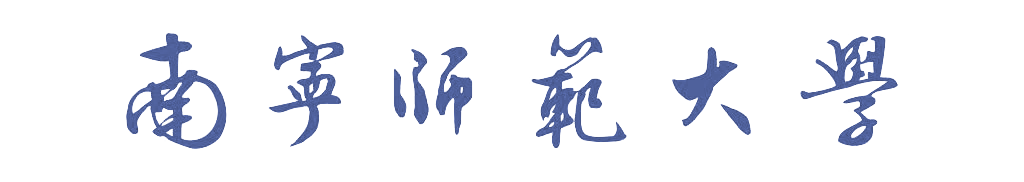 南寧師範大學